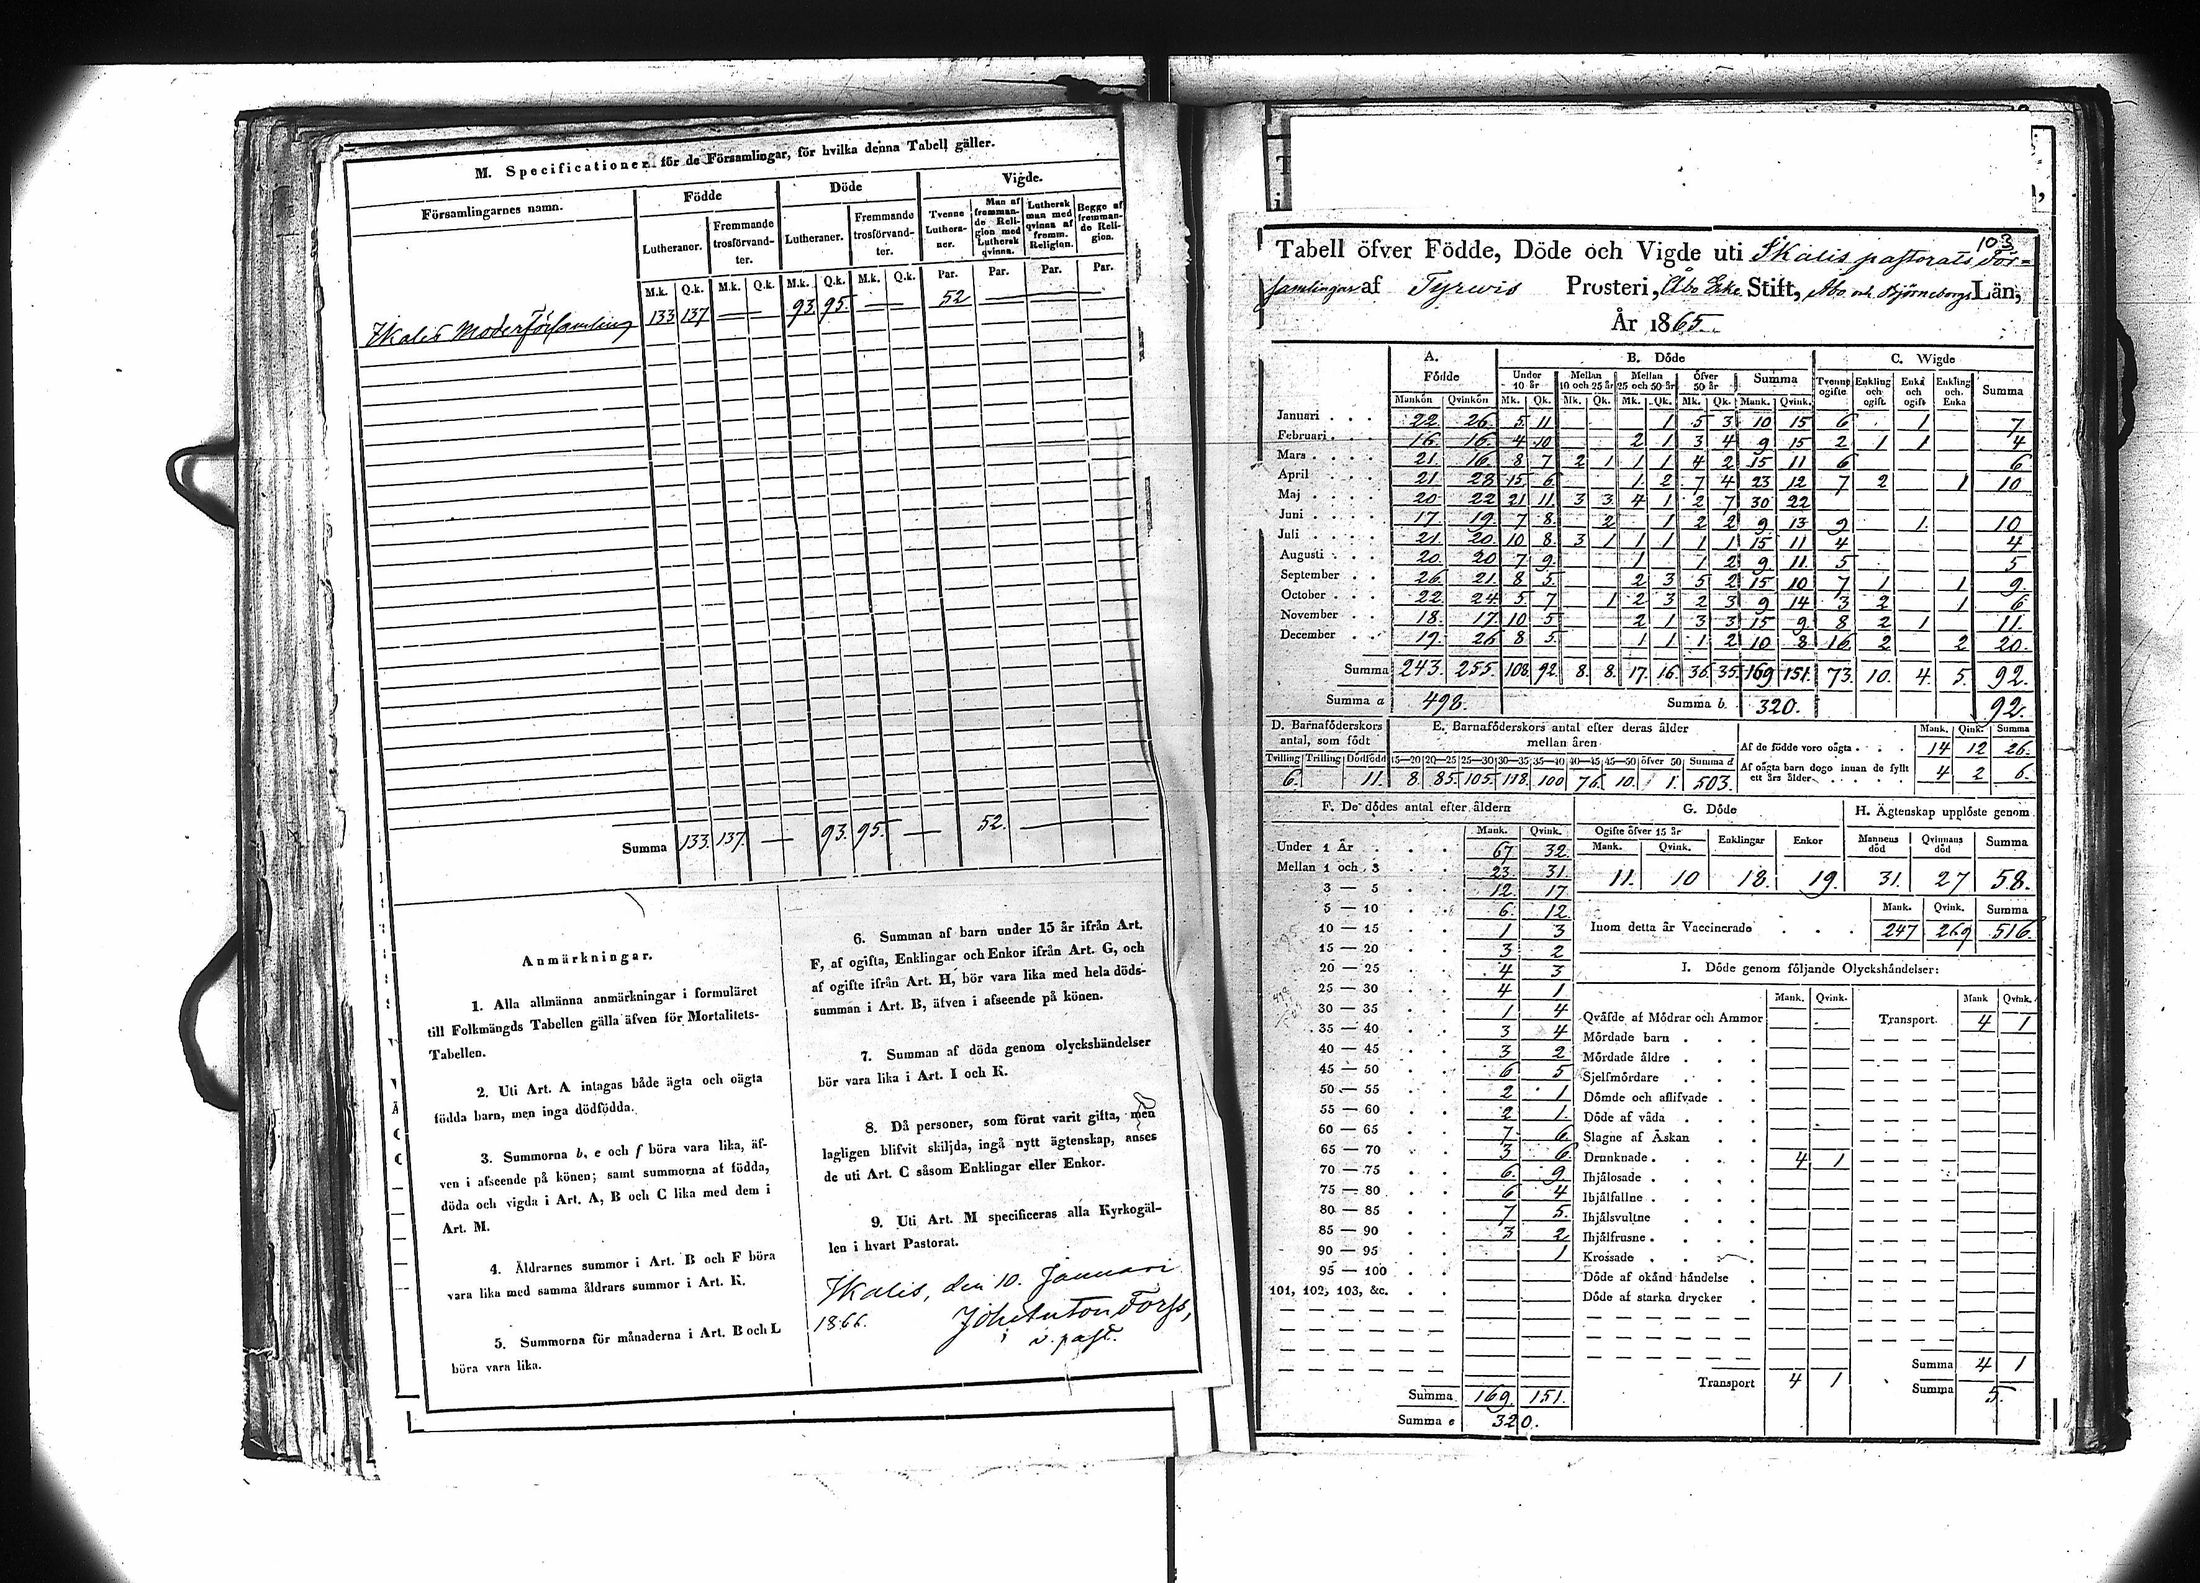 M. Specificationer för de Församlingar, för hvilka denna Tabell gäller.
Församlingarnes namn. Födde Döde Vigde.
Lutheraner. Fremmande trosförvandter. Lutheraner. Fremmande trosförvandter. Tvenne Lutheraner. Man af fremmande Religion med Luthersk qvinna. Luthersk man med qvinna af fremm. Religion. Begge af fremmande Religion.
M.k. Q.k. M.k. Q.k. M.k. Q.k. M.k. Q.k. Par. Par. Par. Par.
Ikalis Moderförsamling 133 137 — — 93. 95. — — 52 — — —
Summa 133. 137. — 93. 95. — 52. —
Anmärkningar.
1. Alla allmänna anmärkningar i formuläret
till Folkmängds Tabellen gälla äfven för Mortalitets-
Tabellen.
2. Uti Art. A intagas både ägta och oägta
födda barn, men inga dödfödda.
3. Summorna b, e och f böra vara lika, äf-
ven i afseende på könen; samt summorna af födda,
döda och vigda i Art. A, B och C lika med dem i
Art. M.
4. Åldrarnes summor i Art. B och F böra
vara lika med samma åldrars summor i Art. K.
5. Summorna för månaderna i Art. B och L
böra vara lika.
6. Summan af barn under 15 år ifrån Art.
F, af ogifta, Enklingar och Enkor ifrån Art. G, och
af ogifte ifrån Art. H, bör vara lika med hela döds-
summan i Art. B, äfven i afseende på könen.
7. Summan af döda genom olyckshändelser
bör vara lika i Art. I och K.
8. Då personer, som förut varit gifta, men
lagligen blifvit skiljda, ingå nytt ägtenskap, anses
de uti Art. C såsom Enklingar eller Enkor.
9. Uti Art. M specificeras alla Kyrkogäl-
len i hvart Pastorat.
Ikalis, den 10. Januari
1866. Joh. Anton Forss,
v. past.
103
Tabell öfver Födde, Döde och Vigde uti Ikalis pastorats För-
samlingar af Tyrwis Prosteri, Åbo Erke Stift, Åbo och Björneborgs Län,
År 1865.
A. Födde B. Döde C. Wigde
Under 10 år Mellan 10 och 25 år Mellan 25 och 50 år Öfver 50 år Summa Tvenne ogifte Enkling och ogift Enka och ogift Enkling och Enka Summa
Mankön Qvinkön Mk. Qk. Mk. Qk. Mk. Qk. Mk. Qk. Mank. Qvink.
Januari 22 26 5 11 1 5 3 10 15 6 1 7
Februari 16 16 4 10 2 1 3 4 9 15 2 1 1 4
Mars 21 16 8 7 2 1 1 1 4 2 15 11 6 6
April 21 28 15 6 1 2 7 4 23 12 7 2 1 10
Maj 20 22 21 11 3 3 4 1 2 7 30 22
Juni 17 19 7 8 2 1 2 2 9 13 9 1 10
Juli 21 20 10 8 3 1 1 1 1 1 15 11 4 4
Augusti 20 20 7 9 1 1 2 9 11 5 5
September 26 21 8 5 2 3 5 2 15 10 7 1 1 9
October 22 24 5 7 1 2 3 2 3 9 14 3 2 1 6
November 18 17 10 5 2 1 3 3 15 9 8 2 1 11
December 19 26 8 5 1 1 1 2 10 8 16 2 2 20
Summa 243. 255. 108. 92. 8. 8. 17. 16. 36. 35. 169. 151. 73. 10. 4. 5. 92.
Summa a 498. Summa b. 320. 92.
D. Barnaföderskors antal, som födt
Tvilling Trilling Dödfödd
6. 11.
E. Barnaföderskors antal efter deras ålder mellan åren
15—20 20—25 25—30 30—35 35—40 40—45 45—50 öfver 50 Summa d
8. 85. 105. 118. 100 76. 10. 1. 503.
Mank. Qink. Summa
Af de födde voro oägta 14 12 26.
Af oägta barn dogo innan de fyllt ett års ålder 4 2 6.
F. De dödes antal efter åldern
Mank. Qvink.
Under 1 År 67 32
Mellan 1 och 3 23 31
3 — 5 12 17
5 — 10 6 12
10 — 15 1 3
15 — 20 3 2
20 — 25 4 3
25 — 30 4 1
30 — 35 1 4
35 — 40 3 4
40 — 45 3 2
45 — 50 6 5
50 — 55 2 1
55 — 60 2 1
60 — 65 7 6
65 — 70 3 6
70 — 75 6 9
75 — 80 6 4
80 — 85 7 5
85 — 90 3 2
90 — 95 1
95 — 100
101, 102, 103, &c.
Summa 169. 151.
Summa e 320.
G. Döde
Ogifte öfver 15 år Enklingar Enkor
Mank. Qvink.
11. 10 18. 19.
H. Ägtenskap upplöste genom
Mannens död Qvinnans död Summa
31. 27 58.
Mank. Qvink. Summa
Inom detta år Vaccinerade 247 269 516.
I. Döde genom följande Olyckshändelser:
Mank. Qvink. Mank Qvink.
Qväfde af Mödrar och Ammor Transport. 4 1
Mördade barn
Mördade äldre
Sjelfmördare
Dömde och aflifvade
Döde af våda
Slagne af Åskan
Drunknade 4 1
Ihjälosade
Ihjälfallne
Ihjälsvultne
Ihjälfrusne
Krossade
Döde af okänd händelse
Döde af starka drycker
Summa 4 1
Transport 4 1 Summa 5.